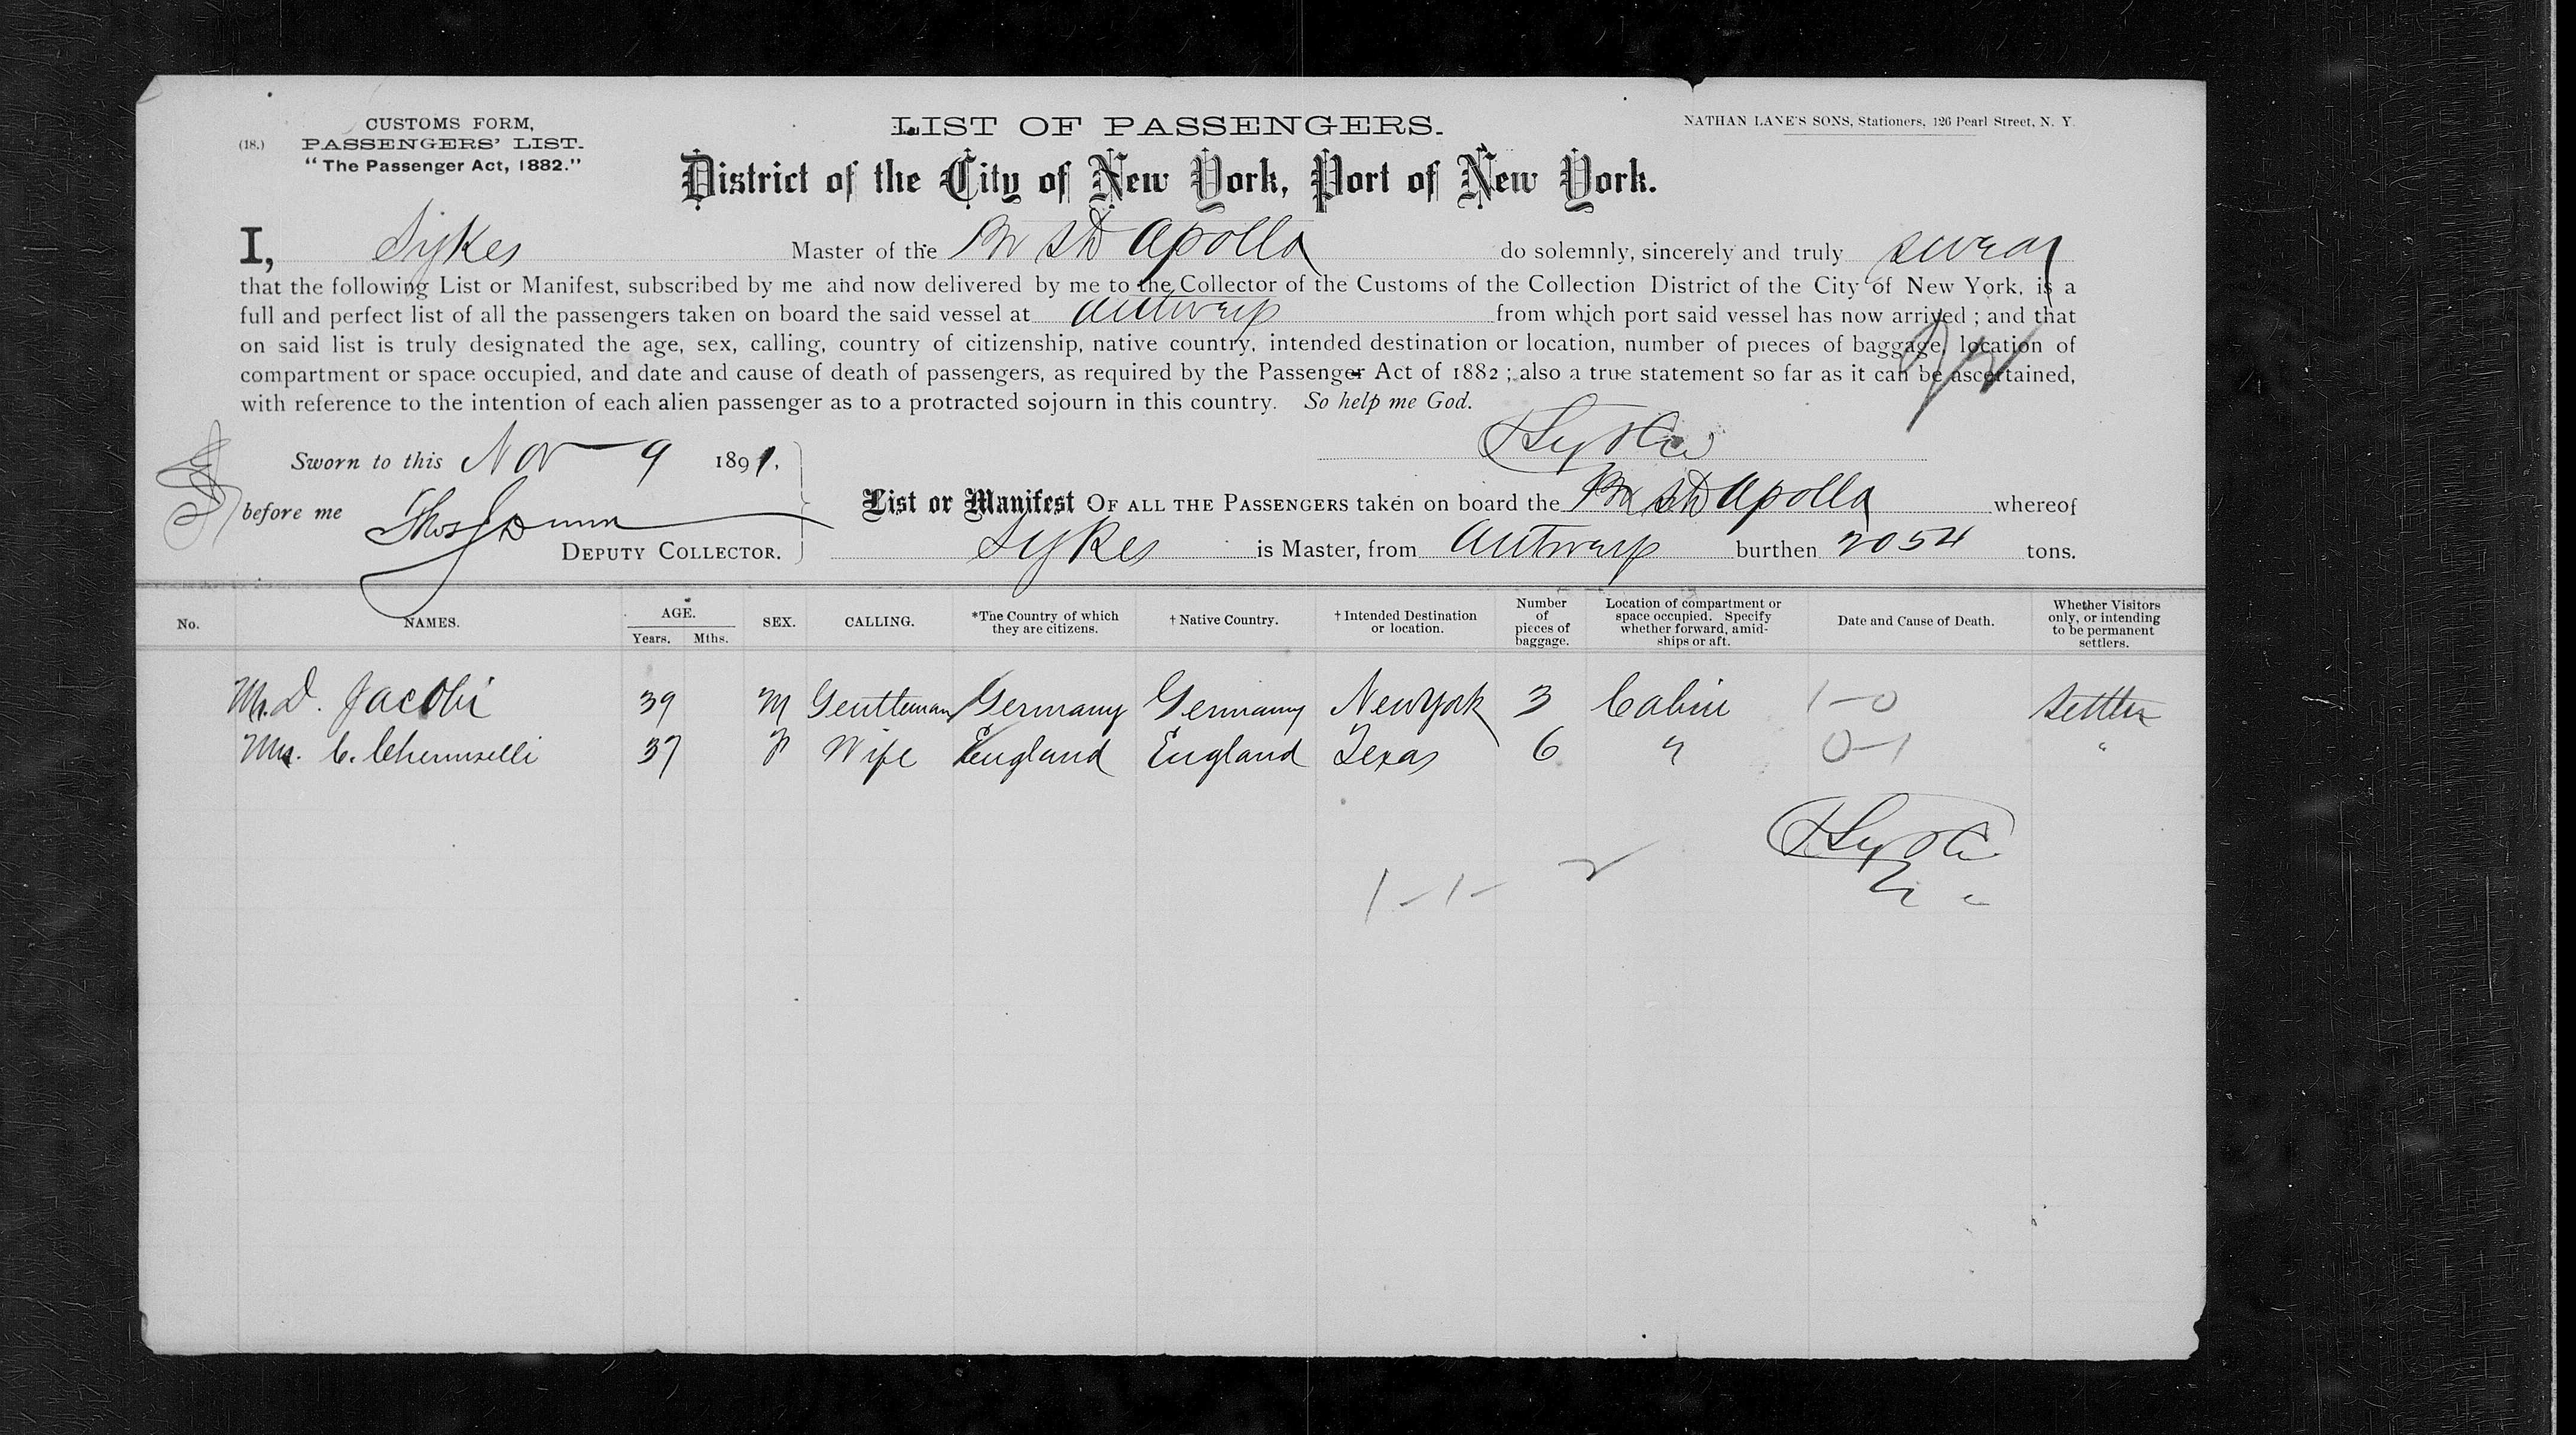 CUSTOMS FORM,
(18.) PASSENGERS' LIST.
"The Passenger Act, 1882."
LIST OF PASSENGERS.
NATHAN LANE'S SONS, Stationers, 126 Pearl Street, N. Y.
District of the City of New York, Port of New York.
I, Sykes Master of the Br SS Apollo do solemnly, sincerely and truly swear
that the following List or Manifest, subscribed by me and now delivered by me to the Collector of the Customs of the Collection District of the City of New York, is a
full and perfect list of all the passengers taken on board the said vessel at Antwerp from which port said vessel has now arrived ; and that
on said list is truly designated the age, sex, calling, country of citizenship, native country, intended destination or location, number of pieces of baggage, location of
compartment or space occupied, and date and cause of death of passengers, as required by the Passenger Act of 1882 ; also a true statement so far as it can be ascertained,
with reference to the intention of each alien passenger as to a protracted sojourn in this country. So help me God.
Sworn to this Nov 9 1891.
before me Thos J Dunn
DEPUTY COLLECTOR.
List or Manifest OF ALL THE PASSENGERS taken on board the Br SS Apollo whereof
Sykes is Master, from Antwerp burthen 2054 tons.
No. NAMES. AGE. Years. Mths. SEX. CALLING. *The Country of which they are citizens. † Native Country. † Intended Destination or location. Number of pieces of baggage. Location of compartment or space occupied. Specify whether forward, amidships or aft. Date and Cause of Death. Whether Visitors only, or intending to be permanent settlers.
Mr. D. Jacobi 39 M Gentleman Germany Germany New York 3 Cabin 1-0 Settler
Mrs. C. 37 F Wife England England Texas 6 " 0-1 "
1-1-